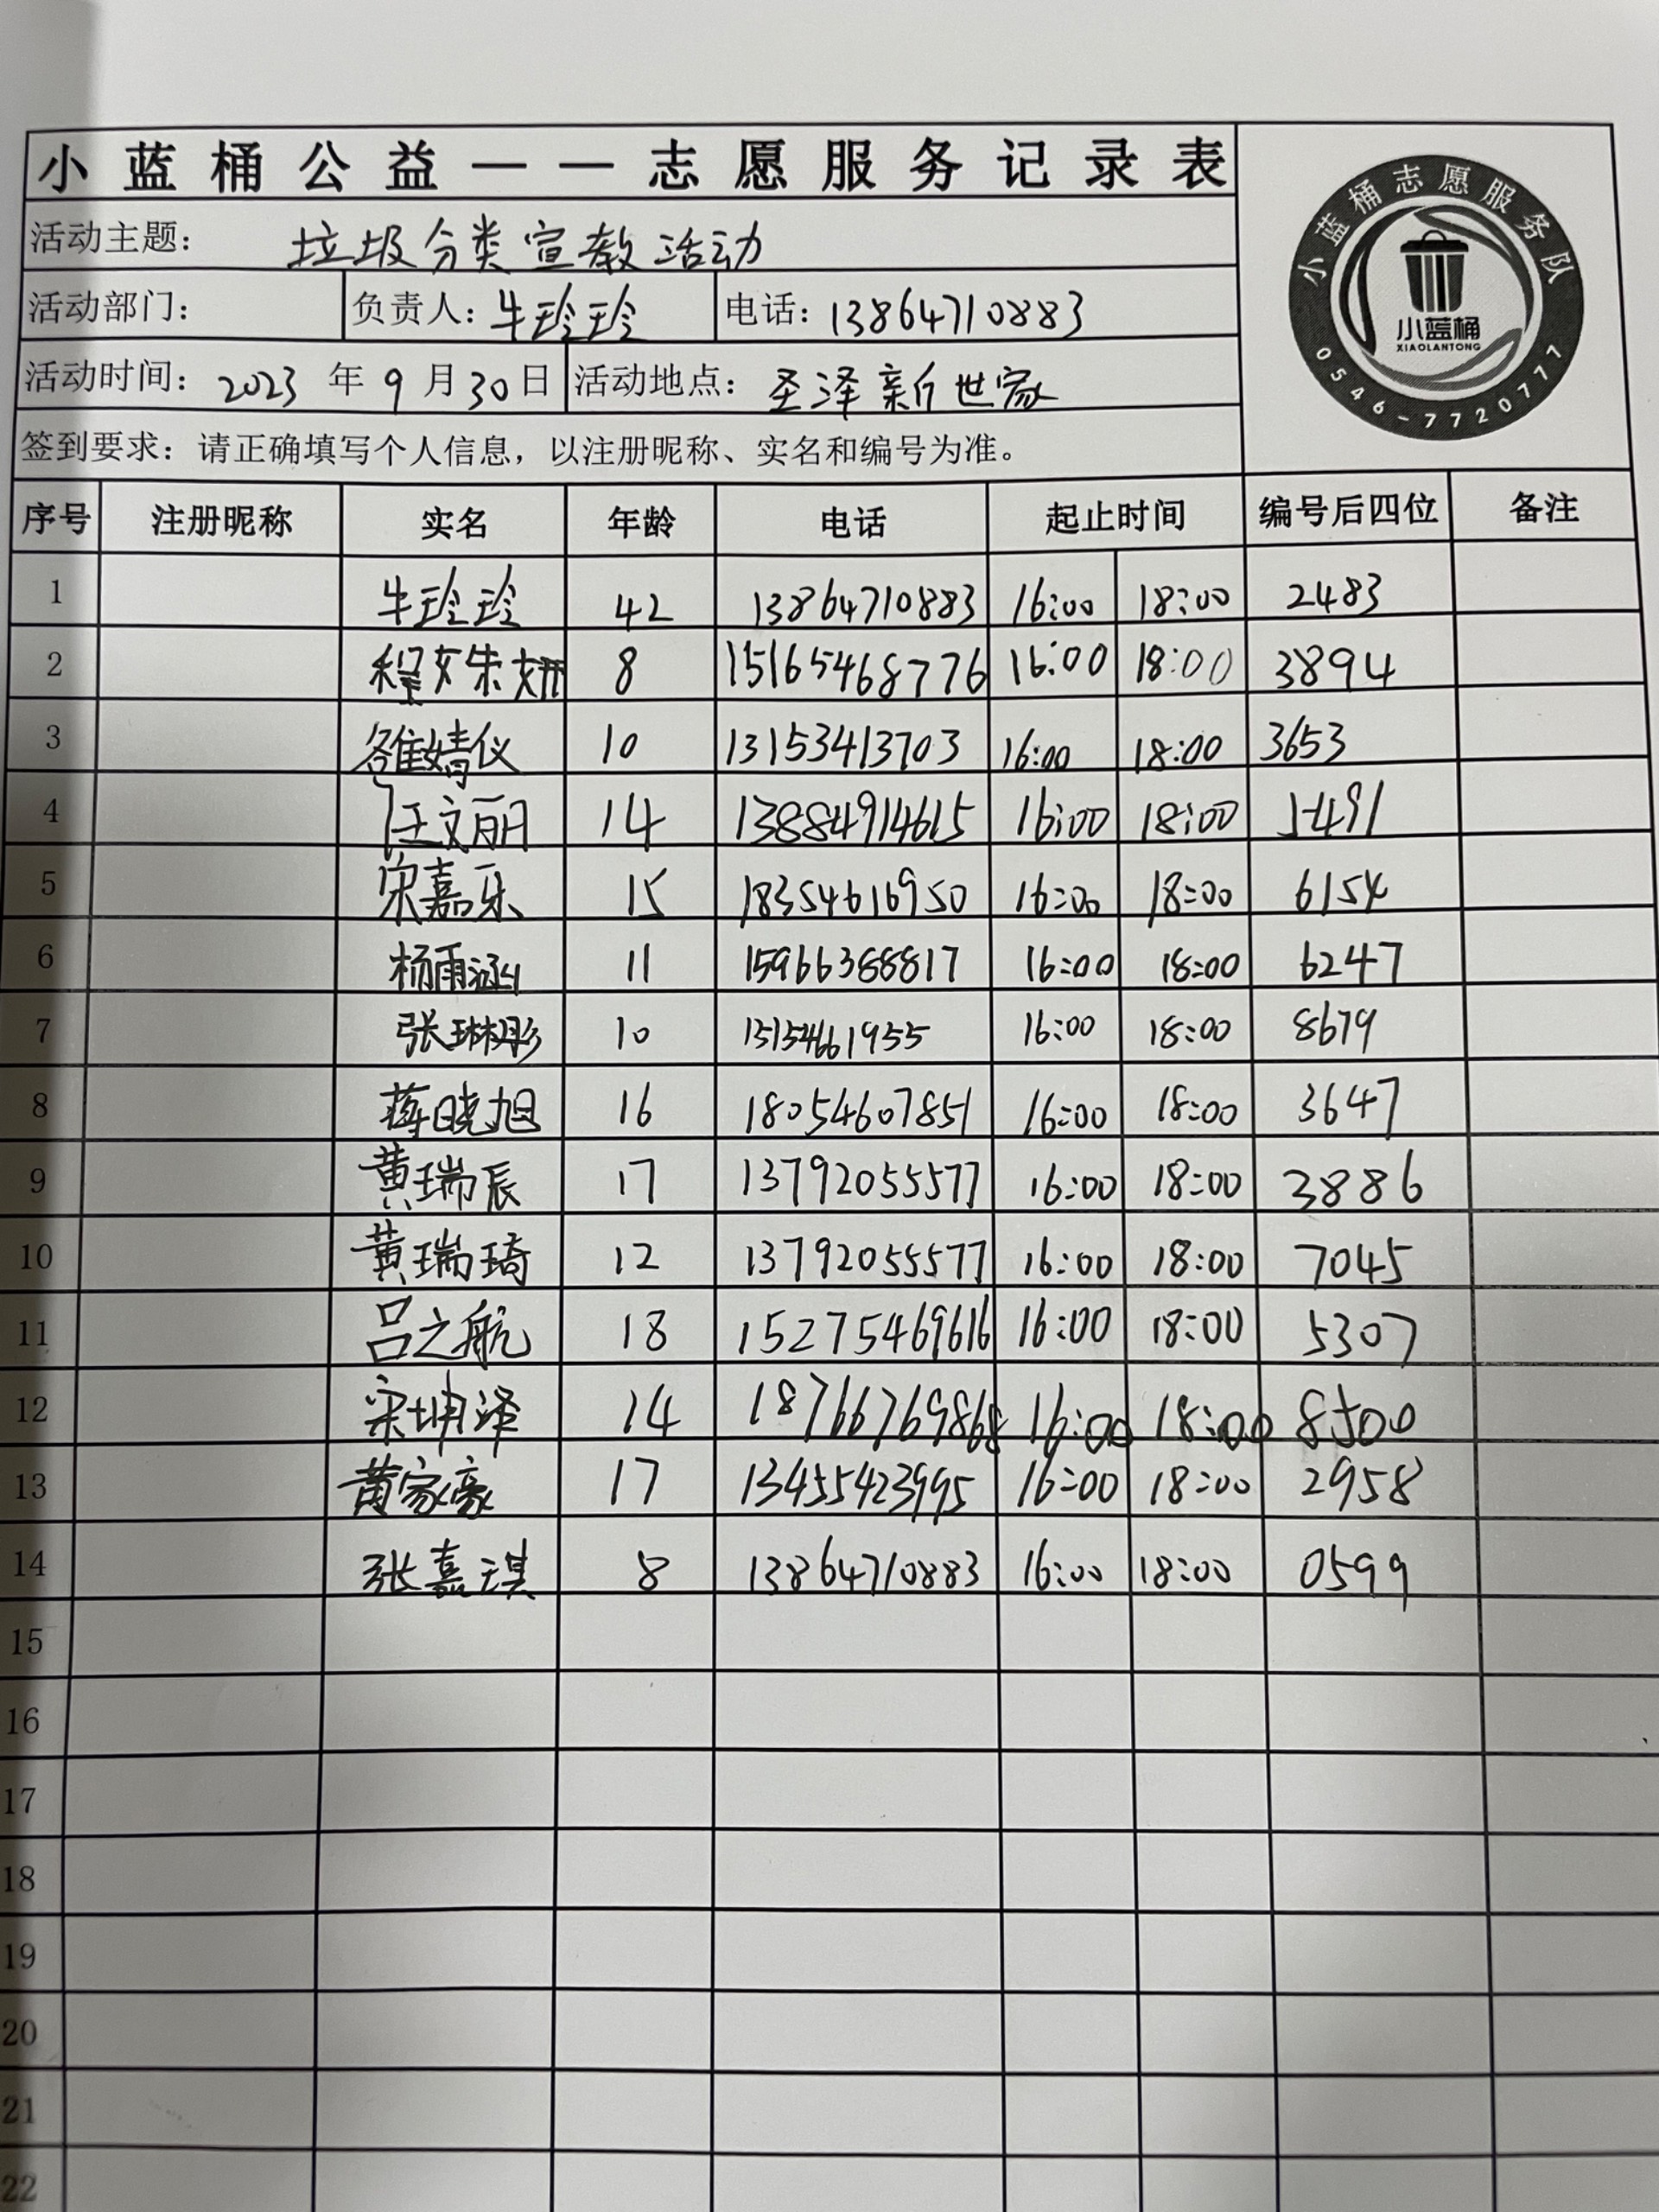 小蓝桶公益——志愿服务记录表
小蓝桶志愿服务队
小蓝桶
XIAOLANTONG
0546-7720777
活动主题: 垃圾分类宣教活动
活动部门: 负责人: 牛玲玲 电话: 13864710883
活动时间: 2023 年 9 月 30 日 活动地点: 圣泽新世家
签到要求: 请正确填写个人信息，以注册昵称、实名和编号为准。
序号 注册昵称 实名 年龄 电话 起止时间 编号后四位 备注
1 牛玲玲 42 13864710883 16:00 18:00 2483
2 8 15165468776 16:00 18:00 3894
3 婧仪 10 13153413703 16:00 18:00 3653
4 汪文丽 14 13884914615 16:00 18:00 1491
5 宋嘉乐 15 18354616950 16:00 18:00 6154
6 杨雨涵 11 15966388817 16:00 18:00 6247
7 张琳彤 10 16:00 18:00 8679
8 蒋晓旭 16 18054607851 16:00 18:00 3647
9 黄瑞辰 17 13792055577 16:00 18:00 3886
10 黄瑞琦 12 13792055577 16:00 18:00 7045
11 吕之航 18 15275469616 16:00 18:00 5307
12 宋坤泽 14 18766769868 16:00 18:00 8500
13 黄家豪 17 13455423995 16:00 18:00 2958
14 张嘉琪 8 13864710883 16:00 18:00 0599
15
16
17
18
19
20
21
22